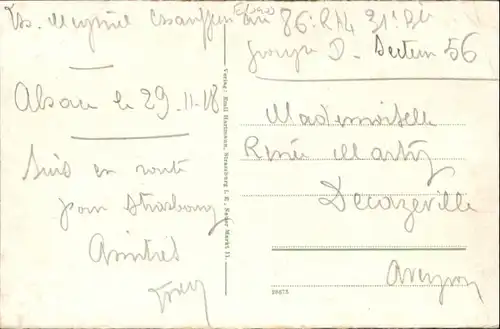 86e R.A.L 31e Bie
Groupe D. Secteur 56
Alsace le 29.11.18
Suis en route
pour Strasbourg
Amitiés
Verlag: Emil Hartmann, Strassburg i. E., Neuer Markt 11.
Mademoiselle
Renée Marty
Decazeville
Aveyron